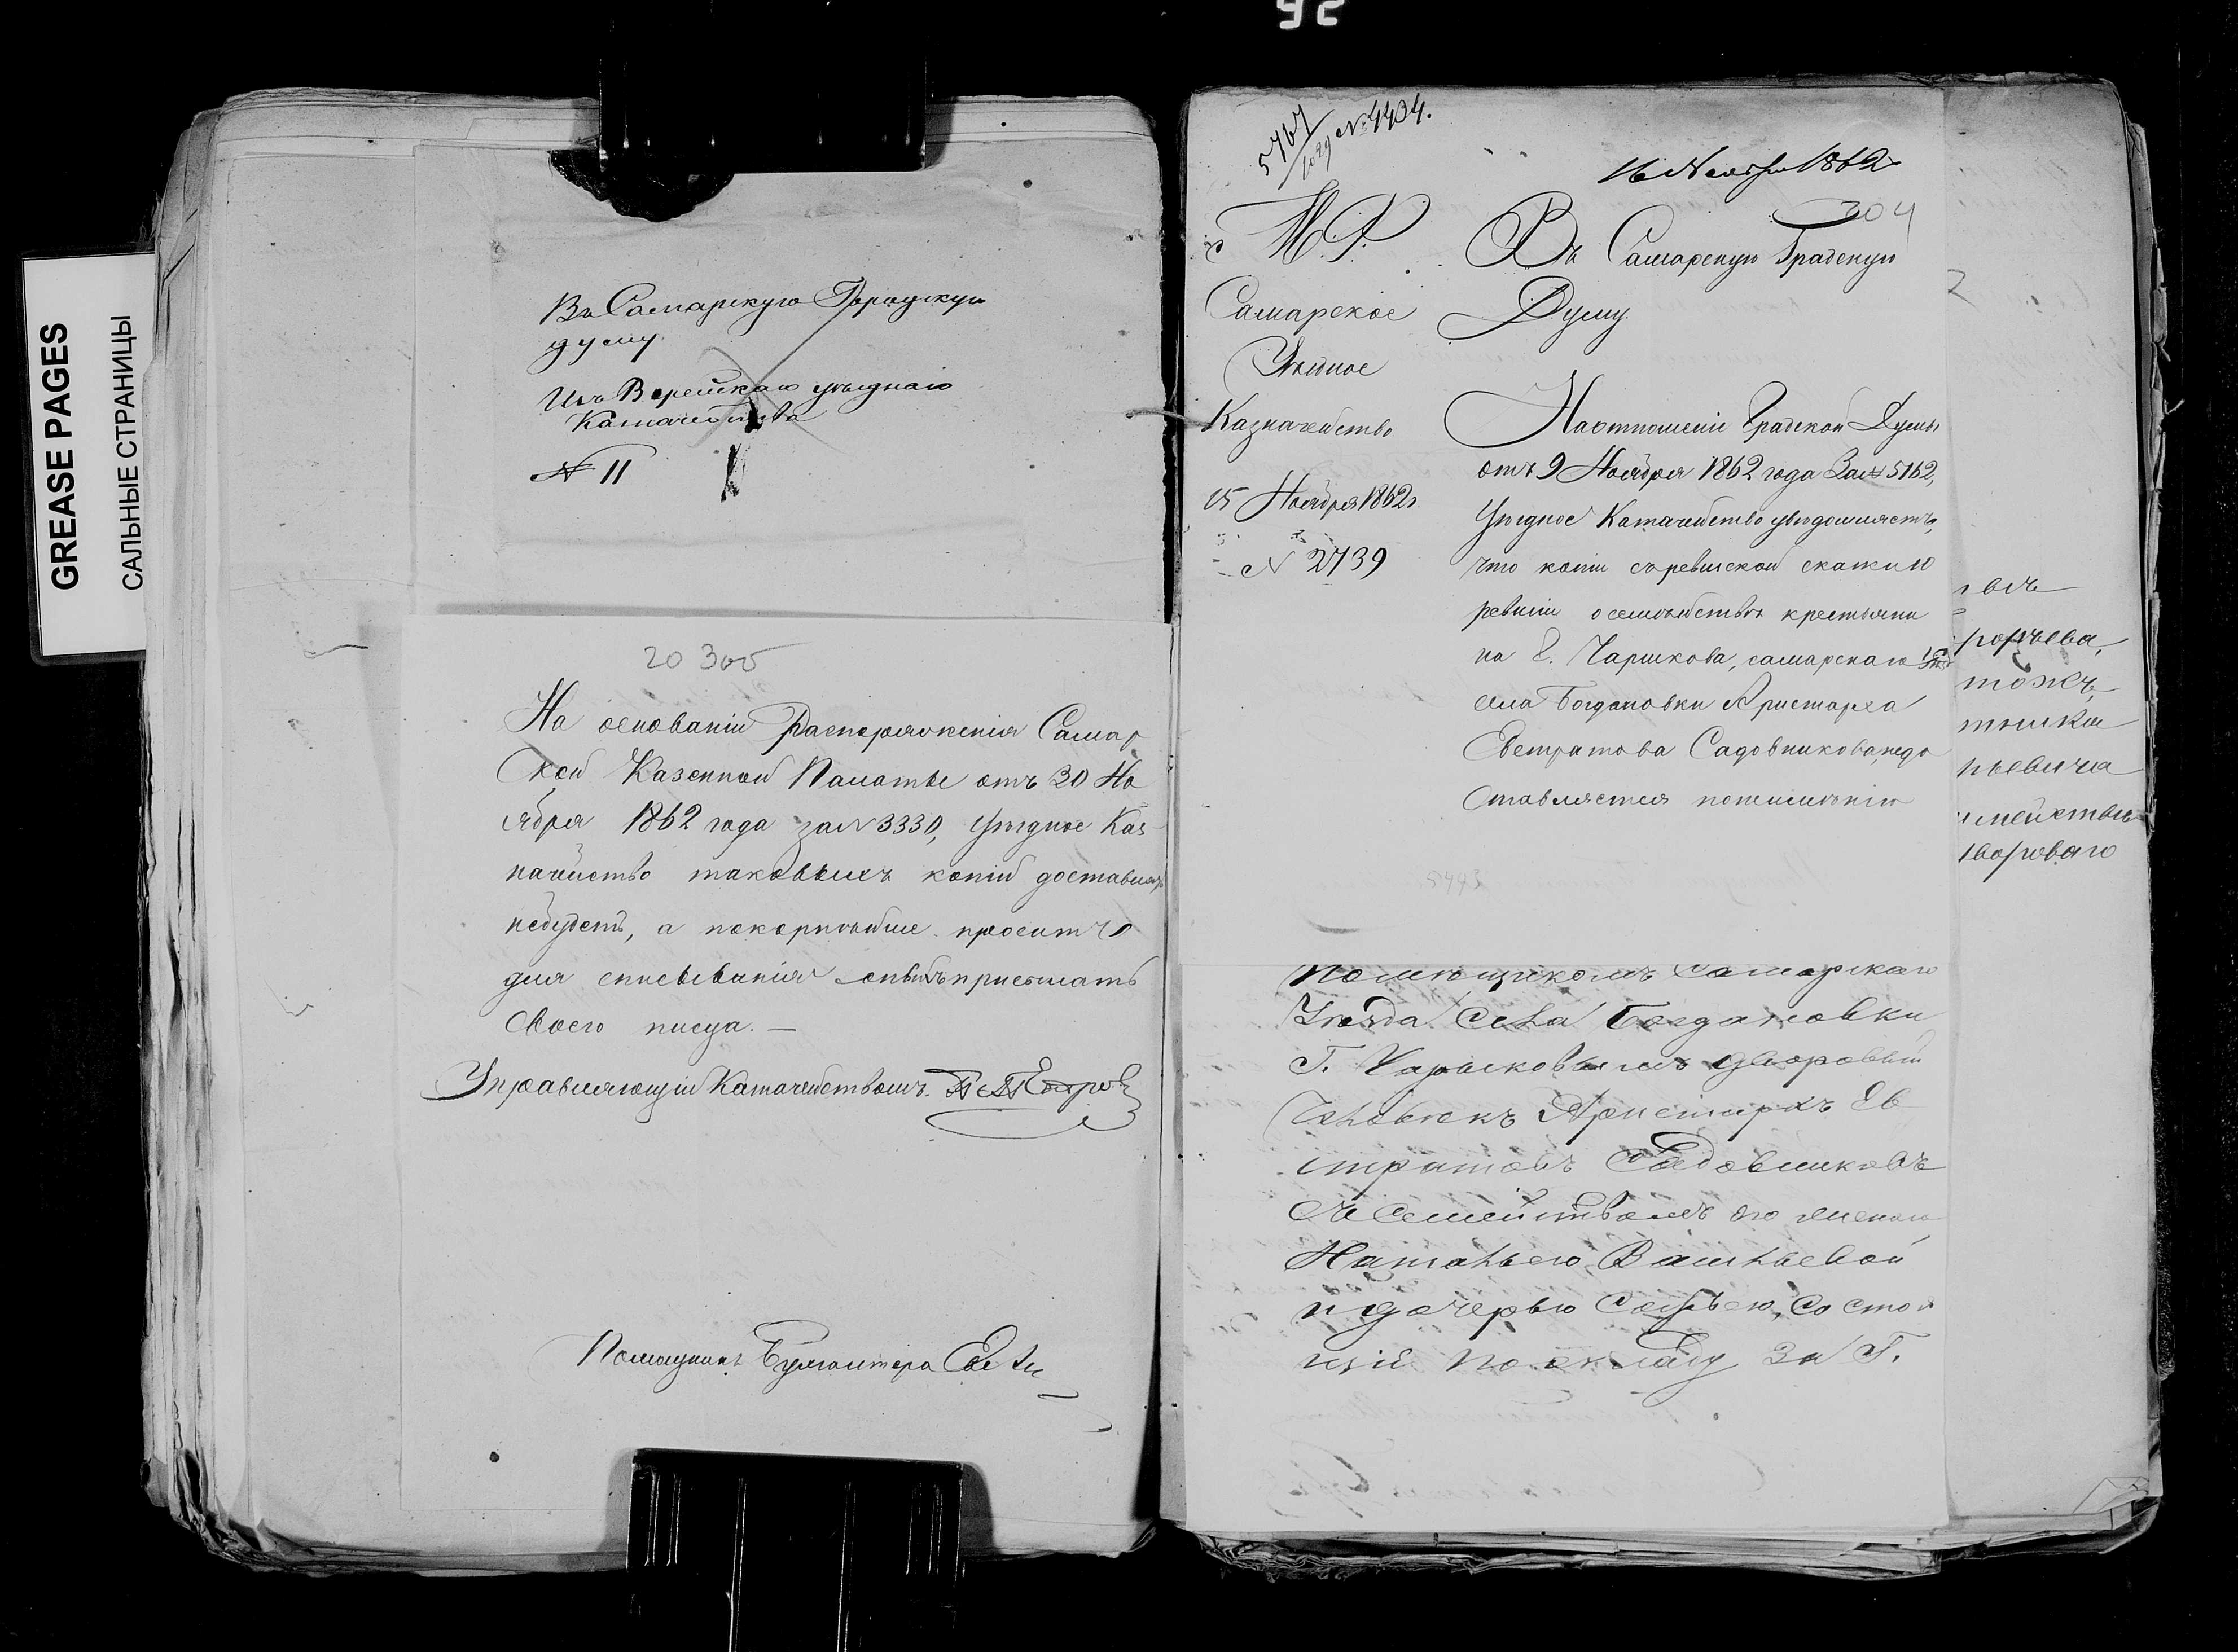 92
GREASE PAGES
САЛЬНЫЕ СТРАНИЦЫ
Въ Самарскую Городскую
думу
Изъ Верейскаго уѣзднаго
Казначейства
№ 11
20 305
На основаніи Распоряженія Самар
ской Казенной Палаты отъ 30 Но
ября 1862 года за № 3330, Уѣздное Каз
начейство таковыхъ копій доставлять
небудетъ, а покорнѣйше проситъ
для списыванія оныхъ присылать
своего писца. —
Управляющій Казначействомъ.
Помощникъ Бухгалтера
5767
№ 4434.
16 Ноября 1862
304
М. Ф.
Самарское
Уѣздное
Казначейство
15 Ноября 1862 г.
№ 2739
Въ Самарскую Градскую
Думу.
На отношеніе Градской Думы
отъ 9 Ноября 1862 года За № 5162,
Уѣздное Казначейство увѣдомляетъ,
что копіи съ ревизской сказки 10
ревизіи о семѣйствѣ крестьяни
на Г. Чарыкова, самарскаго уѣз
села Богдановки Аристарха
Евстратова Садовникова, недо
ставляется понеимѣнію
5443
помѣщикомъ Самарскаго
Уѣзда Села Богдановки
Г. Чарыковымъ дворовый
человѣкъ Аристархъ Ев
стратовъ Садовниковъ
съ семействомъ его женою
Натальею Васильевой
и дочерью Софьею, состоя
щій по окладу за Г.
тожъ,
ьевича
мействѣ
двороваго